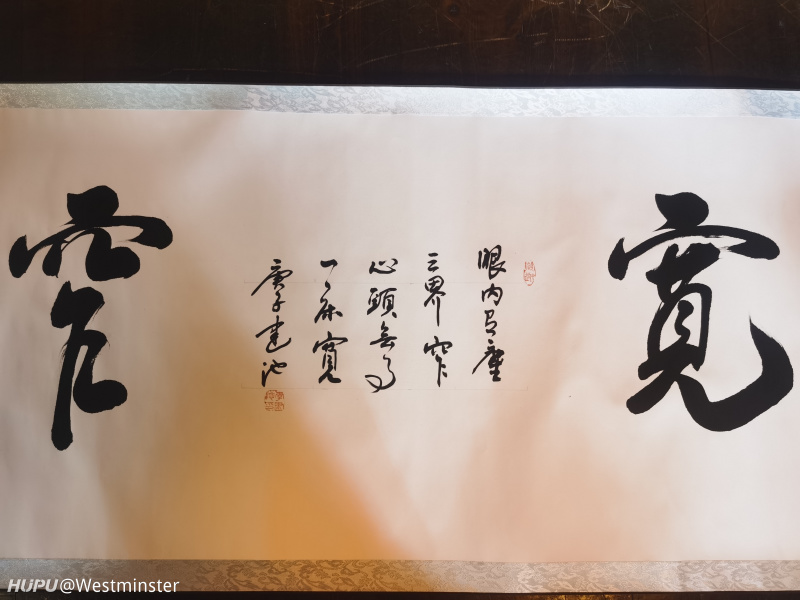 寬
眼内有塵
三界窄
心頭無事
一床寬
庚子建池
窄
HUPU@Westminster